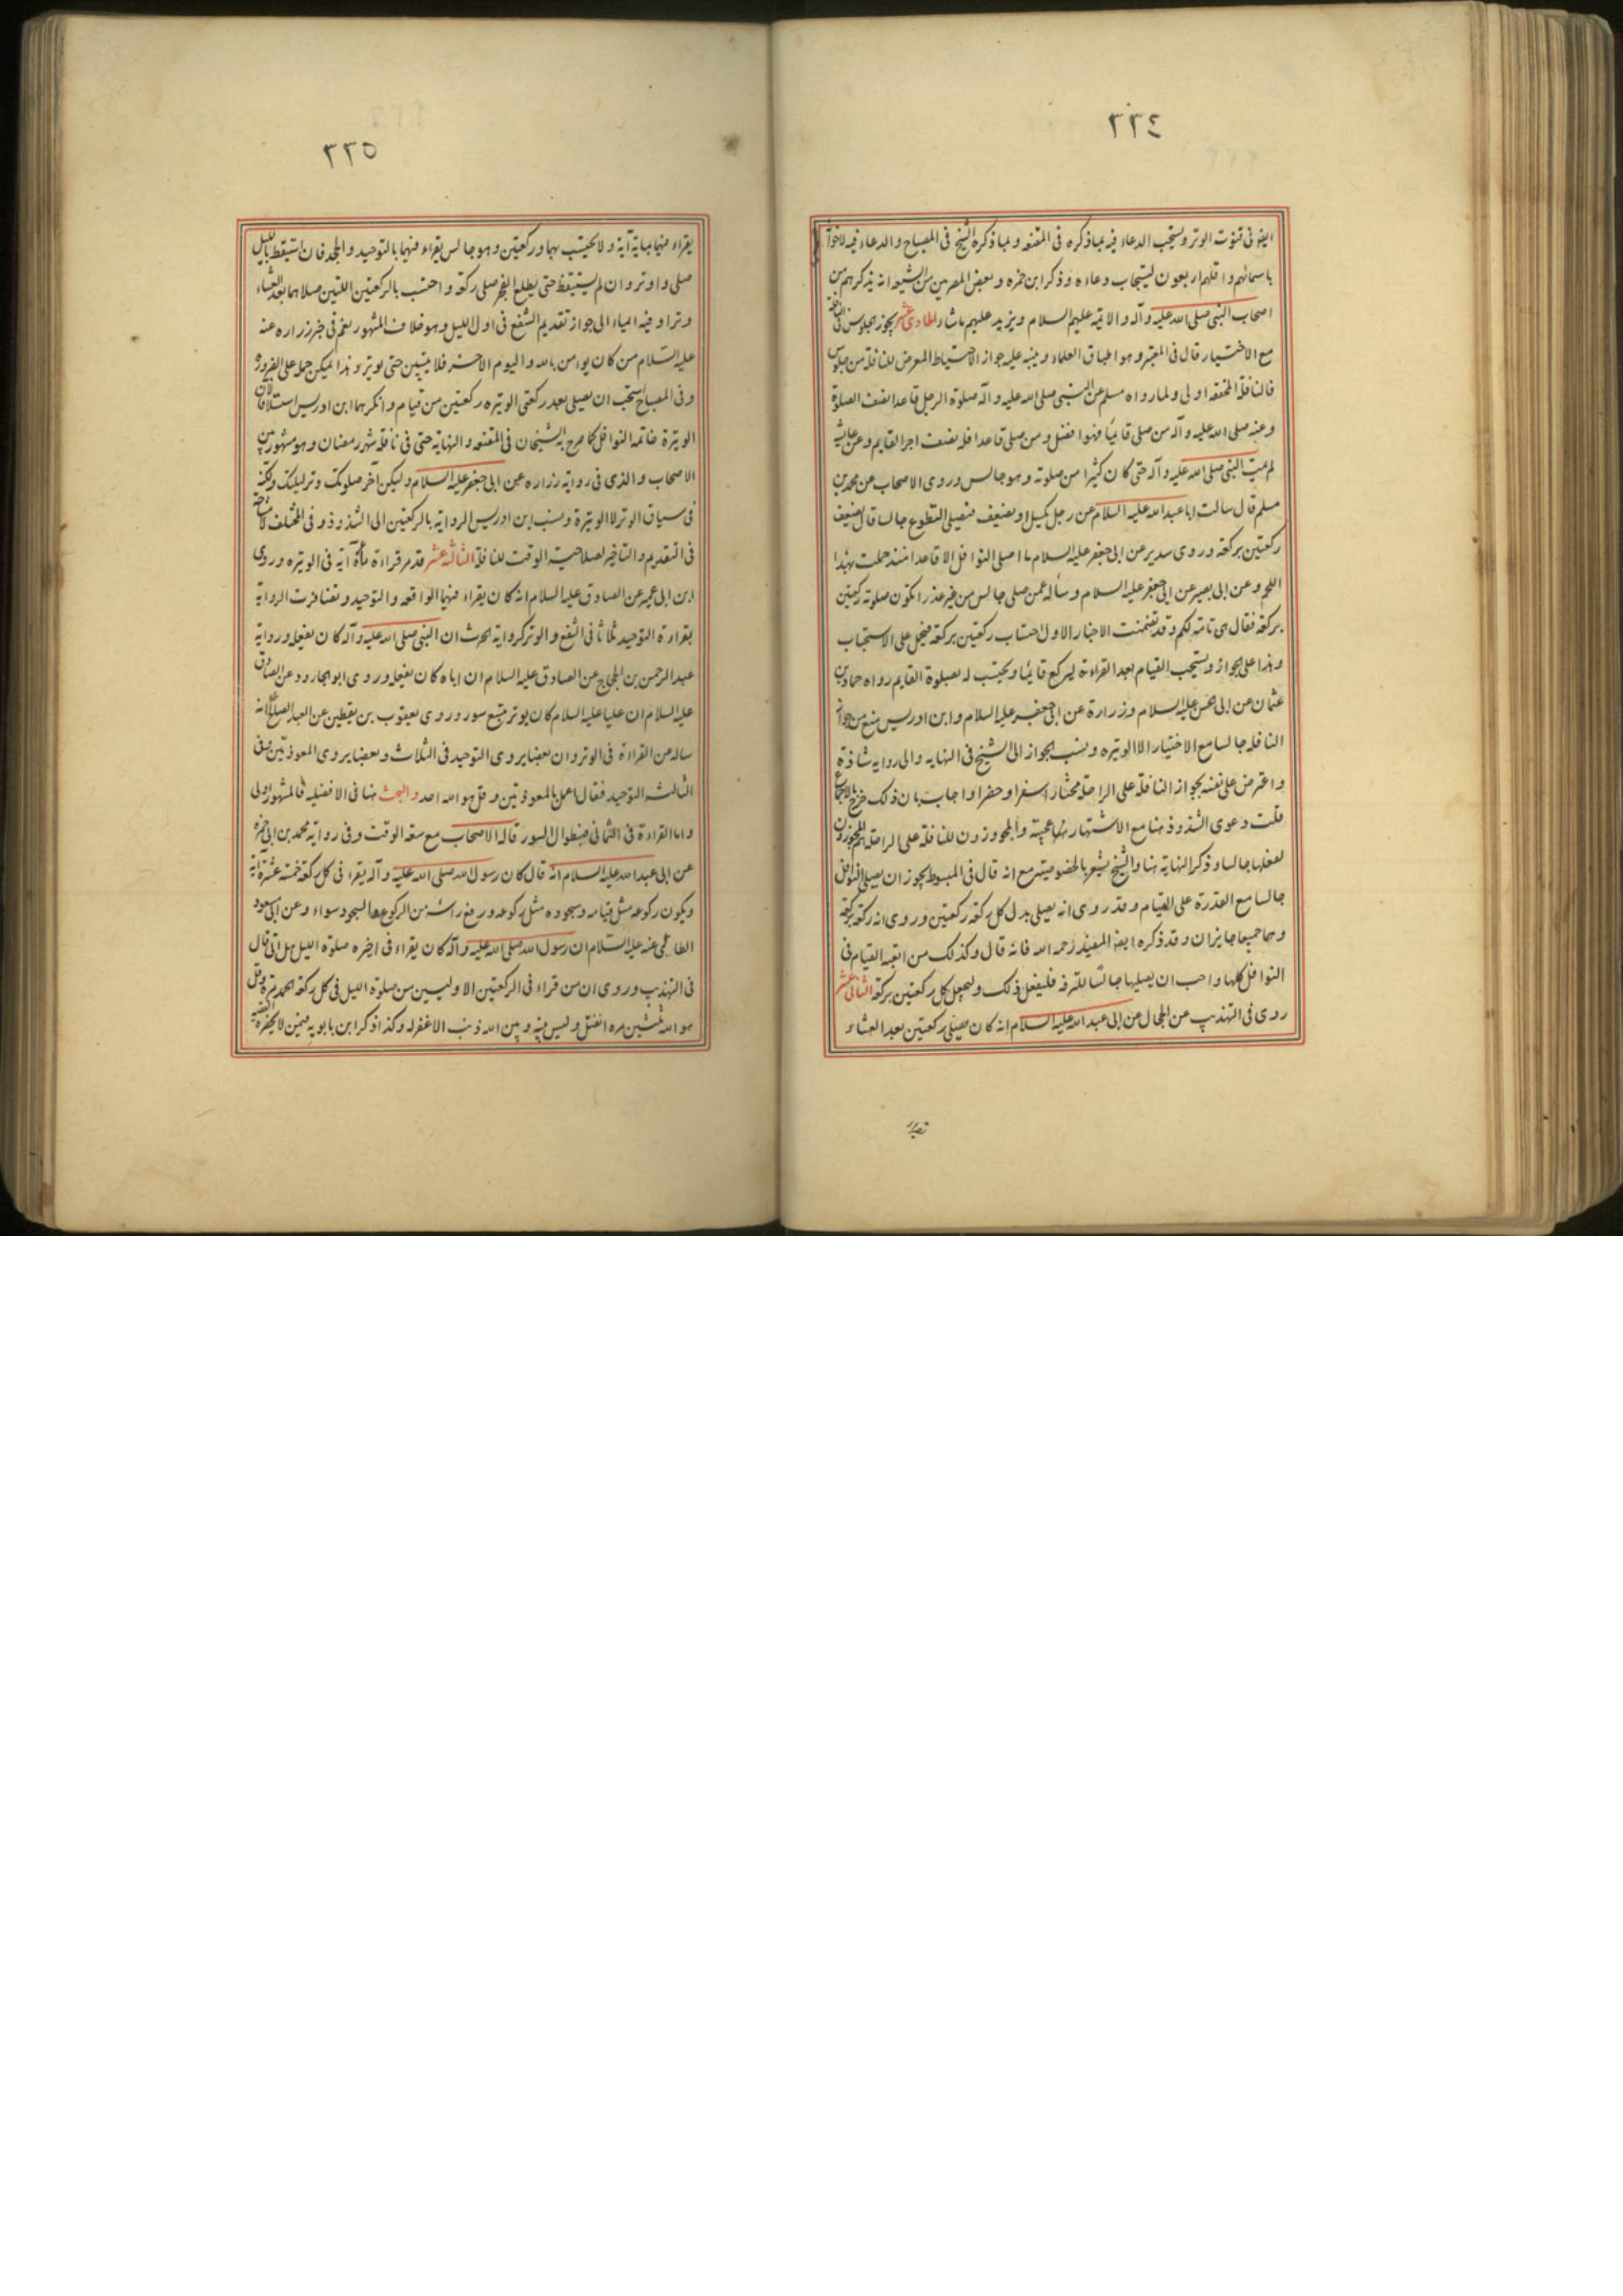 ٢٢٤
ايضا فى قنوت الوتر ويستحب الدعاء فيه بما ذكره فى المقنعه وبما ذكره الشيخ فى المصباح والدعاء فيه لاخوانه
باسمائهم واقلهم اربعون ليستجاب دعاءه وذكر ابن حمزه وبعض المصريين من الشيعه انه يذكرهم من
اصحاب النبى صلى الله عليه وآله والائمة عليهم السلام ويزيد عليهم ماشاء الحادى عشر يجوز الجلوس فى النافلة
مع الاختيار قال فى المعتبر وهو اطباق العلماء وينبه عليه جواز الاحتياط المعرض للنافلة من جلوس
فالنافلة المحققه اولى ولما رواه مسلم عن النبى صلى الله عليه وآله صلوة الرجل قاعدا نصف الصلوة
وعنه صلى الله عليه وآله من صلى قائما فهو افضل ومن صلى قاعدا فله نصف اجر القايم وعن عايشه
لم يمت النبى صلى الله عليه وآله حتى كان كثيرا من صلوته وهو جالس وروى الاصحاب عن محمد بن
مسلم قال سالت ابا عبد الله عليه السلام عن رجل يكسل او يضعف فيصلى التطوع جالسا قال يضعف
ركعتين بركعة وروى سدير عن ابى جعفر عليه السلام ما اصلى النوافل الا قاعدا منذ حملت هذا
اللحم وعن ابى بصير عن ابى جعفر عليه السلام وساله عمن صلى جالس من غير عذر اتكون صلوته ركعتين
بركعة فقال هى تامة لكم وقد تضمنت الاخبار الاول احتساب ركعتين بركعة فيحمل على الاستحباب
وهذا على الجواز ويستحب القيام بعد القراءة ليركع قائما ويحتسب له بصلوة القايم رواه حماد بن
عثمان عن ابى الحسن عليه السلام وزرارة عن ابى جعفر عليه السلام وابن ادريس منع من جواز
النافلة جالسا مع الاختيار الا الوتيره ونسب الجواز الى الشيخ فى النهايه والى رواية شاذة
واعترض على نفسه بجواز النافلة على الراحلة مختارا سفرا وحضرا واجاب بان ذلك خرج بالاجماع
قلت دعوى الشذوذ هنا مع الاشتهار عجيبة والمجوزون للنافلة على الراحلة هم المجوزون
لفعلها جالسا وذكر النهاية هنا والشيخ يشعر بالخصوصية مع انه قال فى المبسوط يجوز ان يصلى النوافل
جالسا مع القدرة على القيام وقد روى انه يصلى بدل كل ركعة ركعتين وروى انه ركعة بركعة
وهما جميعا جايزان وقد ذكره ايضا المفيد رحمه الله فانه قال وكذلك من اتعبه القيام فى
النوافل كلها واحب ان يصليها جالسا للترفه فليفعل ذلك وليجعل كل ركعتين بركعة الثانى عشر
روى فى التهذيب عن الحجال عن ابى عبد الله عليه السلام انه كان يصلى ركعتين بعد العشاء
٢٢٥
يقراء فيهما بماية آية ولا يحتسب بهما وركعتين وهو جالس يقراء فيهما بالتوحيد والجحد فان استيقظ بالليل
صلى واوتر وان لم يستيقظ حتى يطلع الفجر صلى ركعة واحتسب بالركعتين اللتين صلاهما بعد العشاء
وترا وفيه ايماء الى جواز تقديم الشفع فى اول الليل وهو خلاف المشهور نعم فى خبر زراره عنه
عليه السلام من كان يومن بالله واليوم الاخر فلا يبيتن حتى يوتر وهذا يمكن حمله على الضرورة
وفى المصباح يستحب ان يصلى بعد ركعتى الوتيره ركعتين من قيام وانكرهما ابن ادريس استسلافا لان
الوتيرة خاتمة النوافل كما صرح به الشيخان فى المقنعه والنهايه حتى فى نافلة شهر رمضان وهو مشهور بين
الاصحاب والذى فى رواية زراره عن ابى جعفر عليه السلام وليكن آخر صلوتك وتر ليلتك ولكنه
فى سياق الوتر لا الوتيرة ونسب ابن ادريس الرواية بالركعتين الى الشذوذ وفى المختلف لا مشاحة
فى التقديم والتاخير لصلاحية الوقت للنافلة الثالثه عشر قدمر قراءة مأة آية فى الوتيره وروى
ابن ابى عمير عن الصادق عليه السلام انه كان يقراء فيهما الواقعه والتوحيد وتضافرت الرواية
بقراءة التوحيد ثلاثا فى الشفع والوتر كرواية الحرث ان النبى صلى الله عليه وآله كان يفعله ورواية
عبد الرحمن بن الحجاج عن الصادق عليه السلام ان اباه كان يفعله وروى ابو الجارود عن الصادق
عليه السلام ان عليا عليه السلام كان يوتر بتسع سور وروى يعقوب بن يقطين عن العبد الصالح انه
ساله عن القراءة فى الوتر وان بعضا يروى التوحيد فى الثلاث وبعضا يروى المعوذتين وفى
الثالثه التوحيد فقال اعمل بالمعوذتين وقل هو الله احد والبحث هنا فى الافضليه فالمشهور اولى
واما القراءة فى الثمانى فبطوال السور قاله الاصحاب مع سعة الوقت وفى رواية محمد بن ابى حمزه
عن ابى عبد الله عليه السلام انه قال كان رسول الله صلى الله عليه وآله يقراء فى كل ركعة خمسة عشرة آية
ويكون ركوعه مثل قيامه وسجوده مثل ركوعه ورفع راسه من الركوع والسجود سواء وعن ابى مسعود
الطائى عنه عليه السلام ان رسول الله صلى الله عليه وآله كان يقراء فى اخيره صلوة الليل هل اتى قال
فى التهذيب وروى ان من قراء فى الركعتين الاوليين من صلوة الليل فى كل ركعة الحمد مرة وقل
هو الله ثلثين مره انفتل وليس بينه وبين الله ذنب الا غفر له وكذا ذكر ابن بابويه فيمن لا يحضره الفقيه